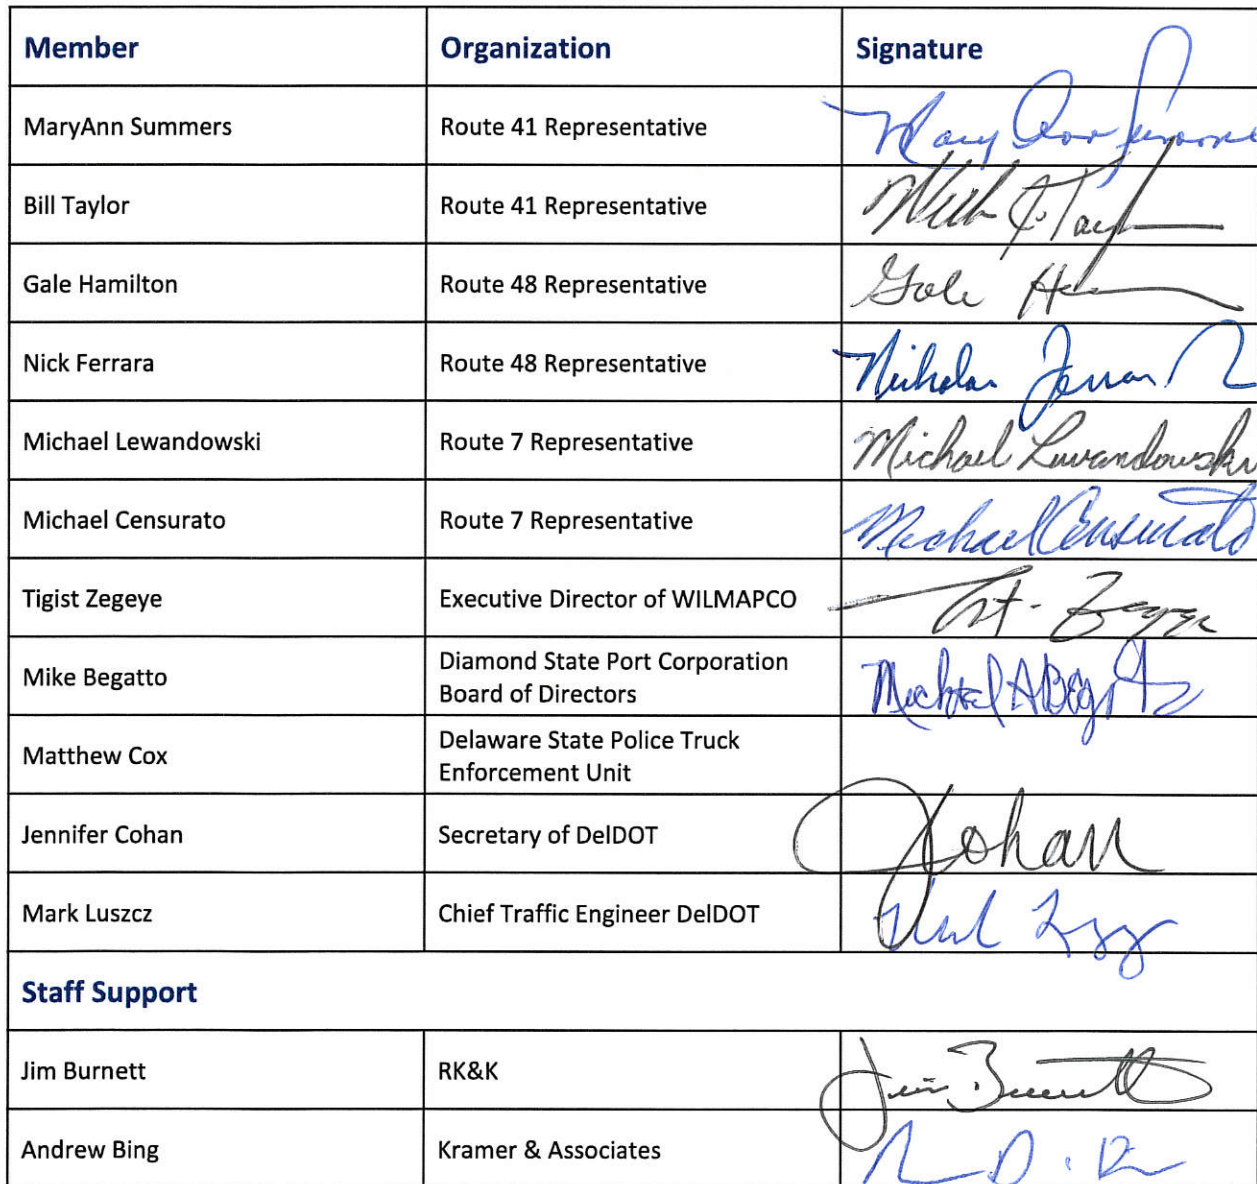 Member Organization Signature
MaryAnn Summers Route 41 Representative Mary Ann Summers
Bill Taylor Route 41 Representative
Gale Hamilton Route 48 Representative Gale
Nick Ferrara Route 48 Representative Nicholas Ferrara
Michael Lewandowski Route 7 Representative Michael Lewandowski
Michael Censurato Route 7 Representative Michael Censurato
Tigist Zegeye Executive Director of WILMAPCO
Mike Begatto Diamond State Port Corporation
Board of Directors Michael A Begatto
Matthew Cox Delaware State Police Truck
Enforcement Unit
Jennifer Cohan Secretary of DelDOT JCohan
Mark Luszcz Chief Traffic Engineer DelDOT
Staff Support
Jim Burnett RK&K Jim Burnett
Andrew Bing Kramer & Associates